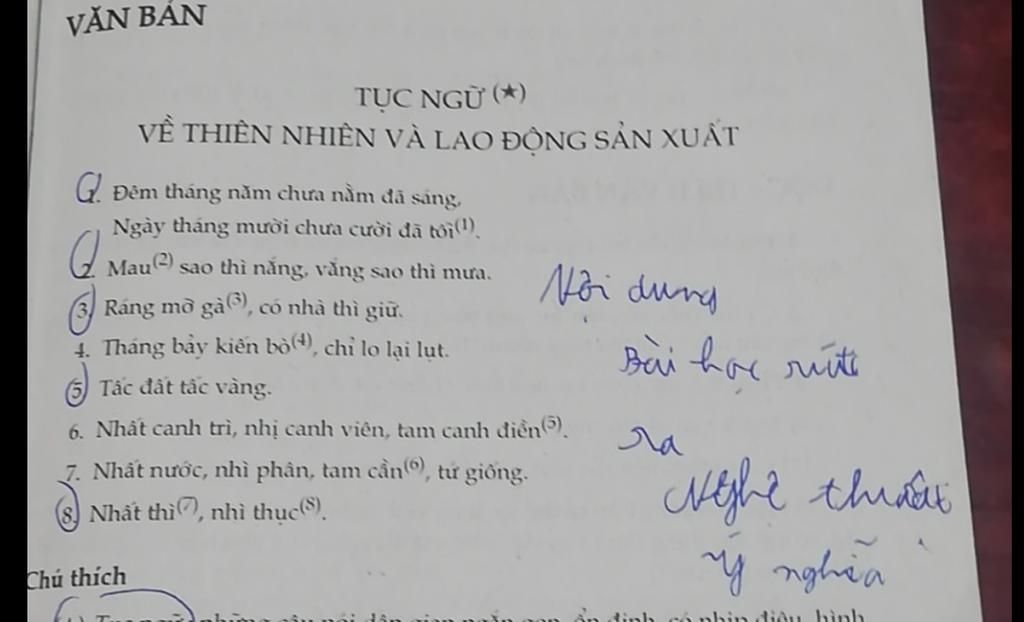 VĂN BẢN
TỤC NGỮ (★)
VỀ THIÊN NHIÊN VÀ LAO ĐỘNG SẢN XUẤT
1. Đêm tháng năm chưa nằm đã sáng,
Ngày tháng mười chưa cười đã tối(1).
2. Mau(2) sao thì nắng, vắng sao thì mưa.
3. Ráng mỡ gà(3), có nhà thì giữ.
4. Tháng bảy kiến bò(4), chỉ lo lại lụt.
5. Tấc đất tấc vàng.
6. Nhất canh trì, nhị canh viên, tam canh điền(5).
7. Nhất nước, nhì phân, tam cần(6), tứ giống.
8. Nhất thì(7), nhì thục(8).
Nội dung
Bài học rút
ra
Nghệ thuật
Ý nghĩa
Chú thích
những câu nói dân gian ngắn gọn, ổn định, có nhịp điệu, hình